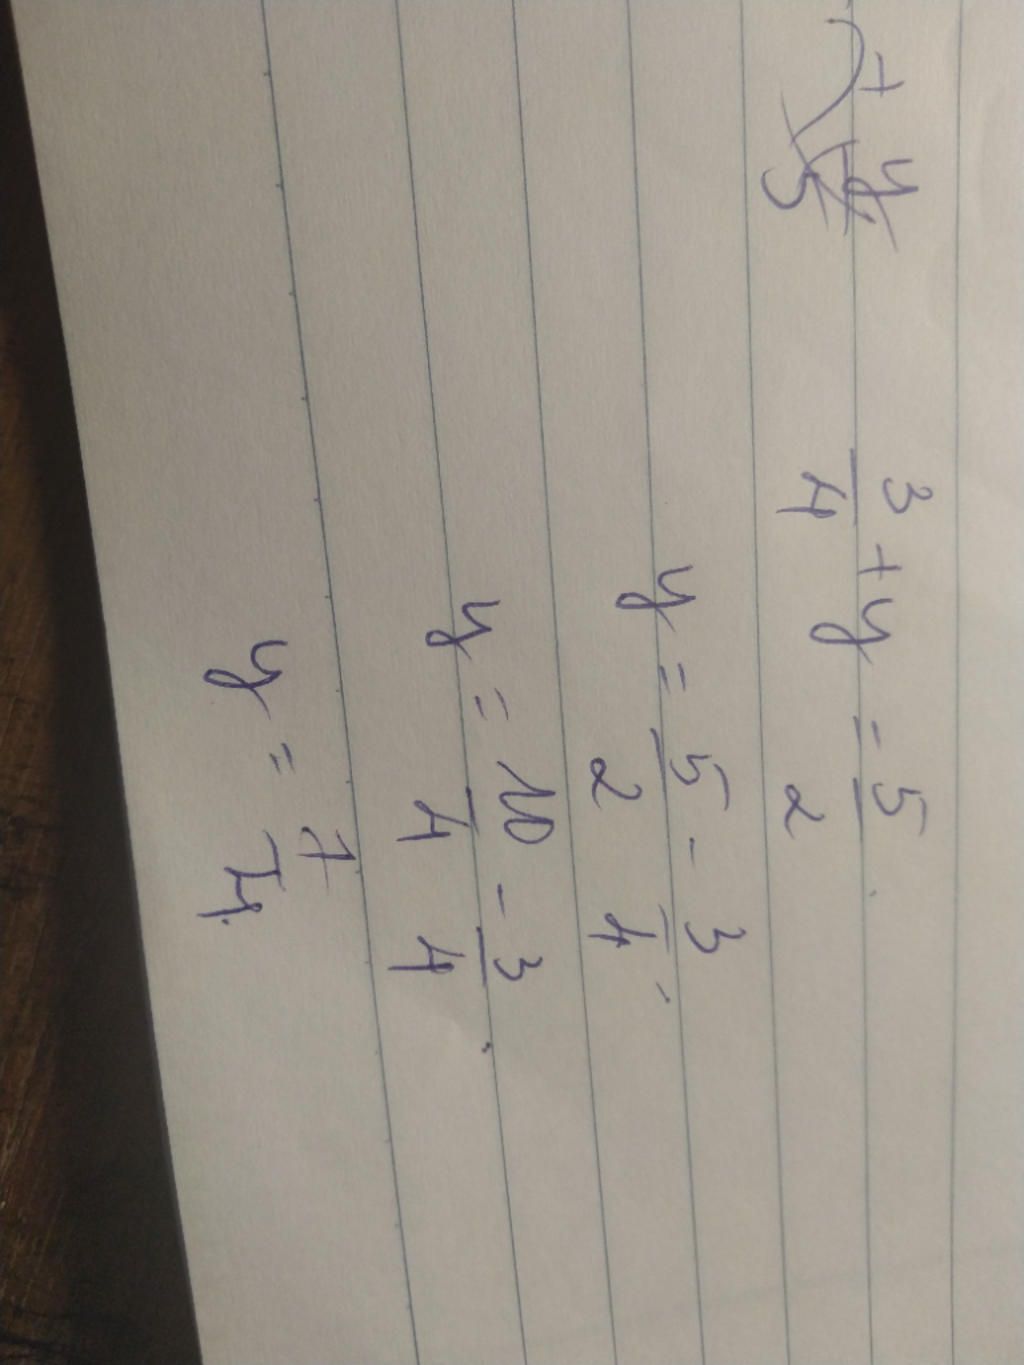 + y/5
3/4 + y = 5/2
y = 5/2 - 3/4
y = 10/4 - 3/4
y = 7/4